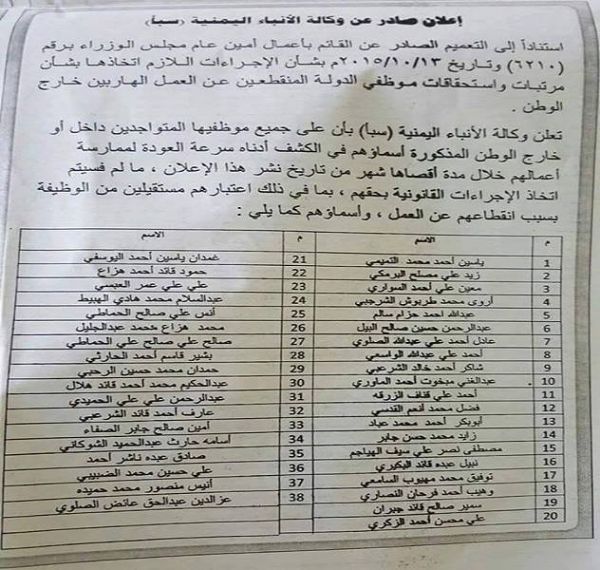 إعلان صادر عن وكالة الأنباء اليمنية (سبأ)
استناداً إلى التعميم الصادر عن القائم بأعمال أمين عام مجلس الوزراء برقم
(٦٢١٠) وتاريخ ٢٠١٥/١٠/١٣م بشأن الإجراءات اللازم اتخاذها بشأن
مرتبات واستحقاقات موظفي الدولة المنقطعين عن العمل الهاربين خارج
الوطن .
تعلن وكالة الأنباء اليمنية (سبأ) بأن على جميع موظفيها المتواجدين داخل أو
خارج الوطن المذكورة أسماؤهم في الكشف أدناه سرعة العودة لممارسة
أعمالهم خلال مدة أقصاها شهر من تاريخ نشر هذا الإعلان ، ما لم فسيتم
اتخاذ الإجراءات القانونية بحقهم ، بما في ذلك اعتبارهم مستقيلين من الوظيفة
بسبب انقطاعهم عن العمل ، وأسماؤهم كما يلي :
م الاسم م الاسم
1 ياسين أحمد محمد التميمي 21 غمدان ياسين أحمد اليوسفي
2 زيد علي مصلح البرمكي 22 حمود قائد أحمد هزاع
3 معين علي أحمد السواري 23 علي علي عمر العبسي
4 أروى محمد طربوش الشرجبي 24 عبدالسلام محمد هادي الهبيط
5 عبدالله أحمد حزام سالم 25 أنس علي صالح الحماطي
6 عبدالرحمن حسين صالح البيل 26 محمد هزاع محمد عبدالجليل
7 عادل أحمد علي عبدالله الصلوي 27 صالح علي صالح علي الحماطي
8 أحمد علي عبدالله الواسعي 28 بشير قاسم أحمد الحارثي
9 شاكر أحمد خالد الشرعبي 29 حمدان محمد حسين الرحبي
10 عبدالغني مبخوت أحمد الماوري 30 عبدالحكيم محمد أحمد قائد هلال
11 أحمد علي قناف الزرقه 31 عبدالرحمن علي علي الحميدي
12 فضل محمد أنعم القدسي 32 عارف أحمد قائد الشرعبي
13 أبوبكر أحمد محمد عباد 33 أمين صالح جابر الصفاء
14 زايد محمد حسن جابر 34 أسامه حارث عبدالحميد الشوكاني
15 مصطفى نصر علي سيف الهياجم 35 صادق عبده ناشر أحمد
16 نبيل عبده قائد البكيري 36 علي حسين محمد الضبيبي
17 توفيق محمد مهيوب السامعي 37 أنيس منصور محمد حميده
18 وهيب أحمد فرحان النصاري 38 عزالدين عبدالحق عائض الصلوي
19 سمير صالح قائد جبران
20 علي محسن أحمد الزكري